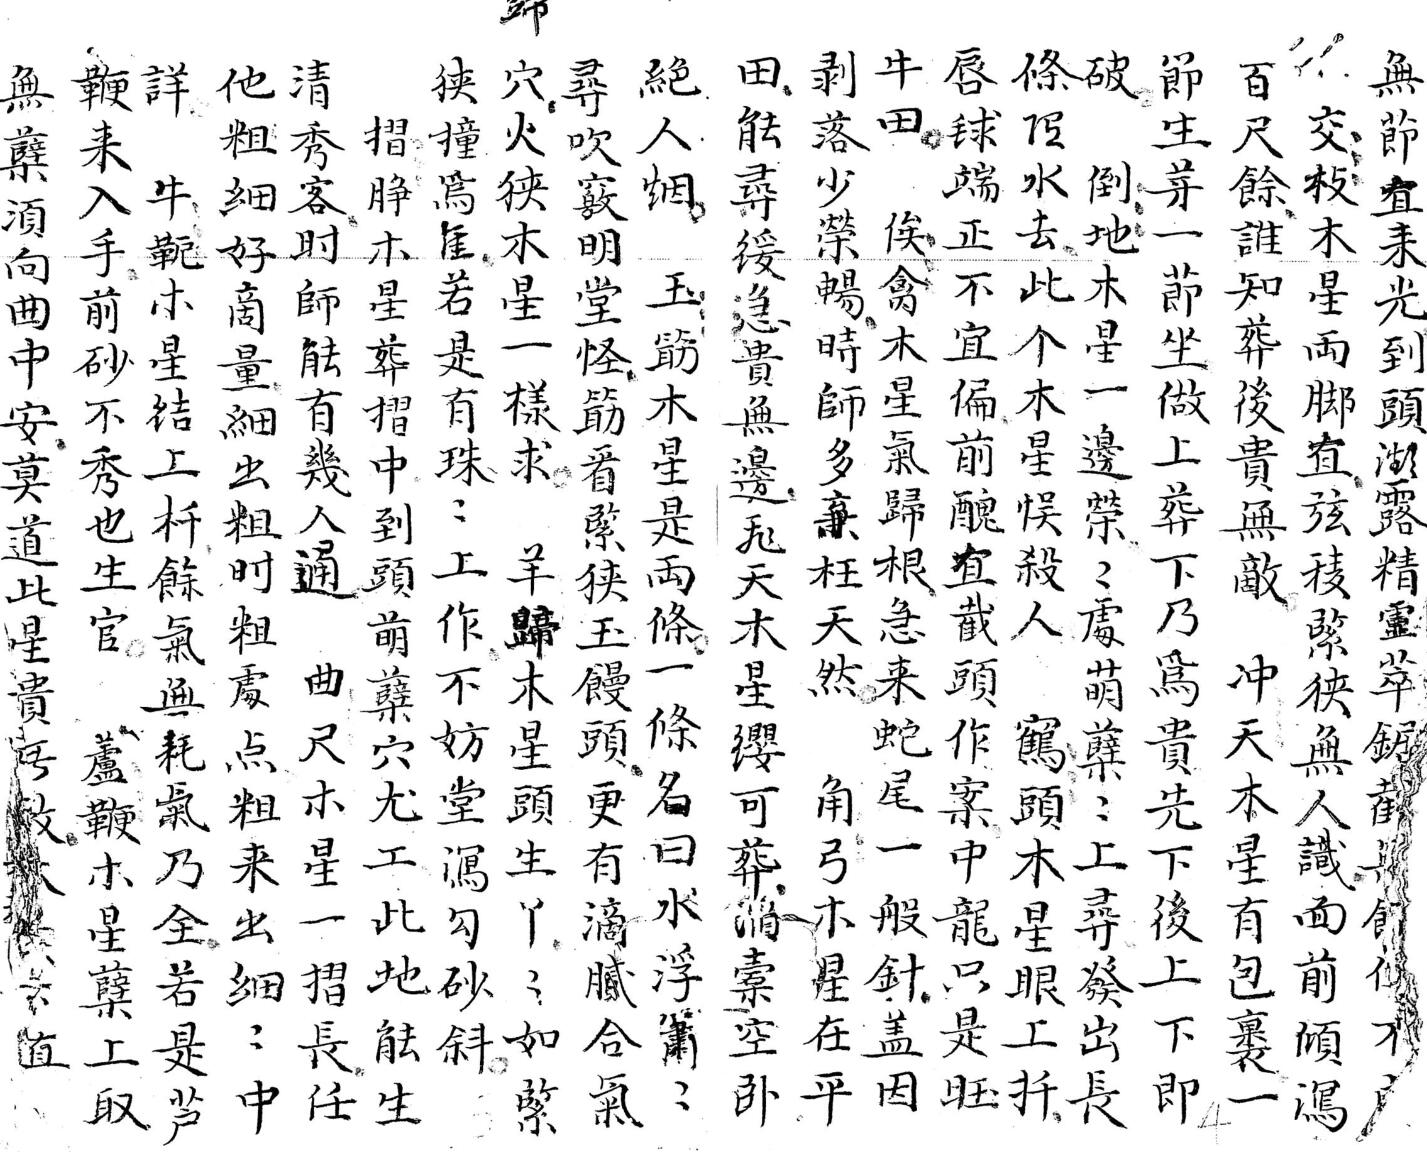 歸
無節宜来光到頭㵎露精靈萃鋸截無節作不
交枝木星兩脚宜弦稜緊狹無人識面前傾瀉
百尺餘誰知葬後貴無敵 冲天木星有包裹一
節生芽一節坐做上葬下乃爲貴先下後上下即
破 倒地木星一邊榮〻處萌蘖〻上尋發出長
條汲水去此个木星悮殺人 鶴頭木星眼上扦
唇毬端正不宜偏前醜宜截頭作案中龍只是旺
牛田 俟禽木星氣歸根急来蛇尾一般針盖因
剥落少榮暢時師多棄枉天然 角弓木星在平
田能尋緩急貴無邊 飛天木星纓可葬消索空卧
絕人烟 玉筯木星是兩條一條名曰水浮簫〻
尋吹竅明堂怪筯看緊狹玉饅頭更有滴膩合氣
穴火狹木星一樣求 羊歸木星頭生丫〻如緊
狹撞爲隹若是有珠〻上作不妨堂瀉勾砂斜
摺脖木星葬摺中到頭萌蘖穴尤工此地能生
清秀客时師能有幾人通 曲尺木星一摺長任
他粗細好商量細出粗时粗處点粗来出細〻中
詳 牛軛木星结上扦餘氣無耗氣乃全若是芦
鞭来入手前砂不秀也生官 蘆鞭木星蘖上取
無蘖須向曲中安莫道此星貴